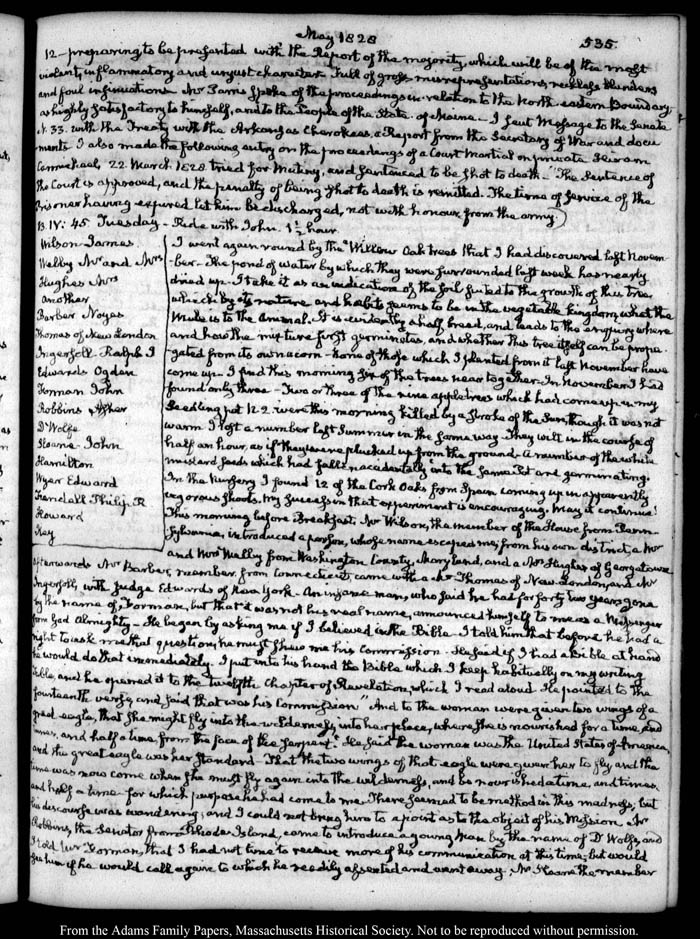 May 1828
535.
12 — preparing to be presented with the Report of the majority, which will be of the most
violent, inflammatory and unjust character. Full of gross misrepresentations, reckless blunders
and foul insinuations. Mr Parris spoke of the proceedings in relation to the North-eastern Boundary,
as highly satisfactory to himself, and to the People of the State of Maine — I sent Message to the Senate
N. 33. with the Treaty with the Arkansas Cherokees, a Report from the Secretary of War and docu
ments. I also made the following entry on the proceedings of a Court Martial on private Hiram
Carmichael, 22 March 1828 tried for Mutiny, and sentenced to be shot to death — "The Sentence of
the Court is approved, and the penalty of being shot to death is remitted. The time of service of the
Prisoner having expired let him be discharged, not with honour from the army."
13. IV: 45. Tuesday — Ride with John. 1½ hour
Wilson James
Welby Mr and Mrs
Hughes Mrs
Another
Barber Noyes
Thomas of New London
Ingersoll Ralph I
Edwards Ogden
Forman John
Robbins Asher
D'Wolfe
Sloane John
Hamilton
Wyer Edward
Fendall Philip R
Howard
Key
I went again round by the Willow Oak trees that I had discovered last Novem-
ber — The pond of water by which they were surrounded last week has nearly
dried up. I take it as an indication of the soil suited to the growth of this tree.
which by its nature and habits seems to be in the vegetable kingdom, what the
Mule is to the animal. It is evidently a half breed, and leads to the enquiry where
and how the mixture first germinates, and whether this tree itself can be propa-
gated from its own acorn — None of those which I planted from it last November have
come up — I find this morning six of the trees near together. In November I had
found only three — Two or three of the nine appletrees which had come up in my
Seedling pot 12.2 were this morning killed by a stroke of the Sun, though it was not
warm. I lost a number last Summer in the same way — They wilt in the course of
half an hour, as if they were plucked up from the ground. A number of the white
mustard seeds which had fallen accidentally into the same Pot and germinating.
In the Nursery I found 12 of the Cork Oaks from Spain coming up in apparently
vigorous shoots. My success in that experiment is encouraging. May it continue!
This morning before Breakfast, Mr Wilson, the member of the House from Penn-
sylvania, introduced a person, whose name escaped me, from his own district, a Mr
and Mrs Welby from Washington County, Maryland, and a Mrs Hughes of Georgetown
Afterwards Mr Barber, member from Connecticut, came with a Mr Thomas of New London, and Mr
Ingersoll, with Judge Edwards of New York — An insane man, who said he had for forty two years gone
by the name of Forman, but that it was not his real name, announced himself to me as a Messenger
from God Almighty — He began by asking me if I believed in the Bible — I told him that before he had a
right to ask me that question, he must shew me his Commission. He said if I had a Bible at hand
he would do that immediately. I put into his hand the Bible which I keep habitually on my writing
table, and he opened it to the twelfth Chapter of Revelation, which I read aloud. He pointed to the
fourteenth verse, and said that was his Commission "And to the woman were given two wings of a
great eagle, that she might fly into the wilderness, into her place, where she is nourished for a time, and
times, and half a time, from the face of the serpent." He said the woman was the United States of America,
and the great eagle was her Standard — That the two wings of that eagle were given her to fly, and the
time was now come when she must fly again into the wilderness, and be nourished a time, and times
and half a time — for which purpose he had come to me. There seemed to be method in this madness; but
his discourse was wandering, and I could not bring him to a point as to the object of his Mission. Mr
Robbins, the Senator from Rhode Island, came to introduce a young man by the name of D'Wolfe, and
I told Mr Forman, that I had not time to receive more of his communication at this time; but would
see him if he would call again to which he readily assented and went away. Mr Sloane the member
From the Adams Family Papers, Massachusetts Historical Society. Not to be reproduced without permission.